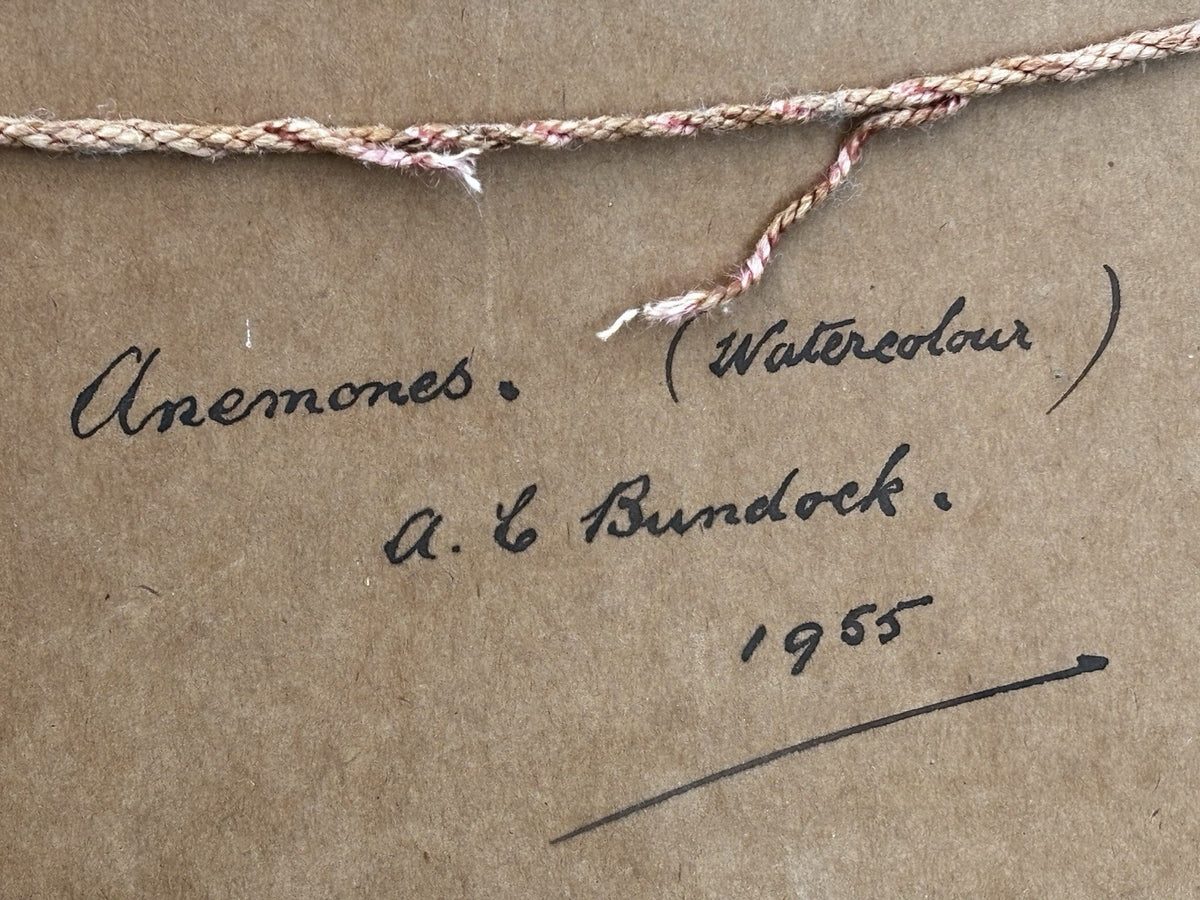 Anemones. (Watercolour)
A. C Bundock.
1955